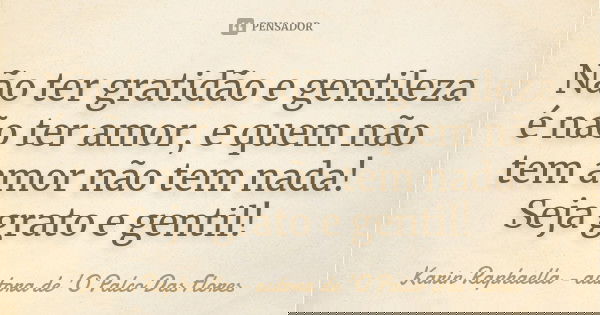 PENSADOR
Não ter gratidão e gentileza
é não ter amor, e quem não
tem amor não tem nada!
Seja grato e gentil!
Karin Raphaella - autora de 'O Palco Das Flores